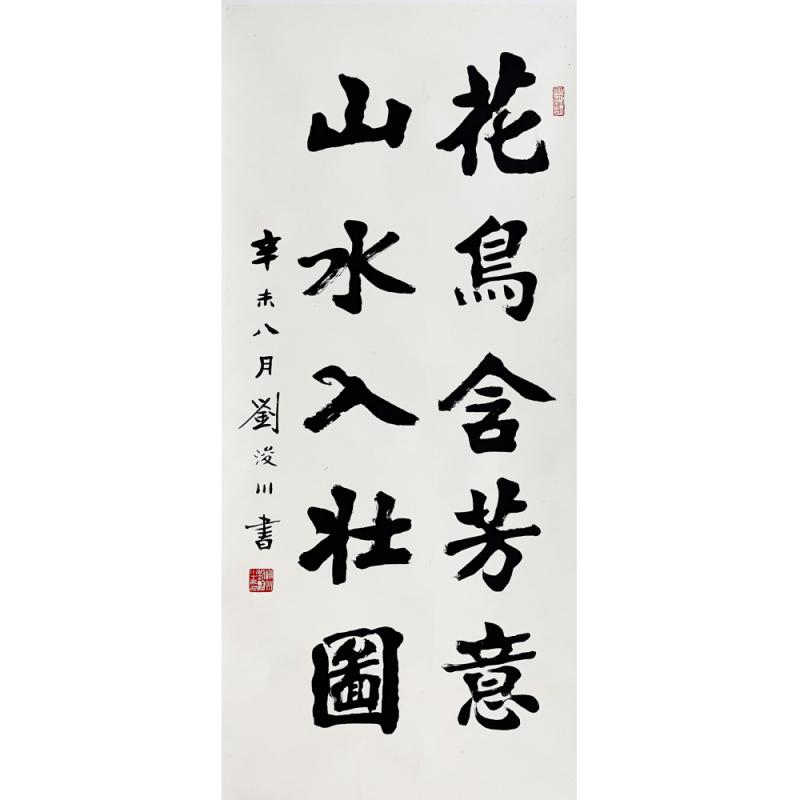 花鳥含芳意
山水入壯圖
辛未八月劉浚川書